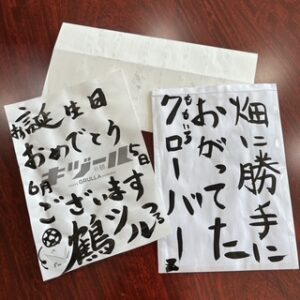 お誕生日
おめでとう
キヅール
6月5日
GRULLA
ございます
鶴ツルつる
畑に勝手に
おがってた
ももいろ
クローバーz